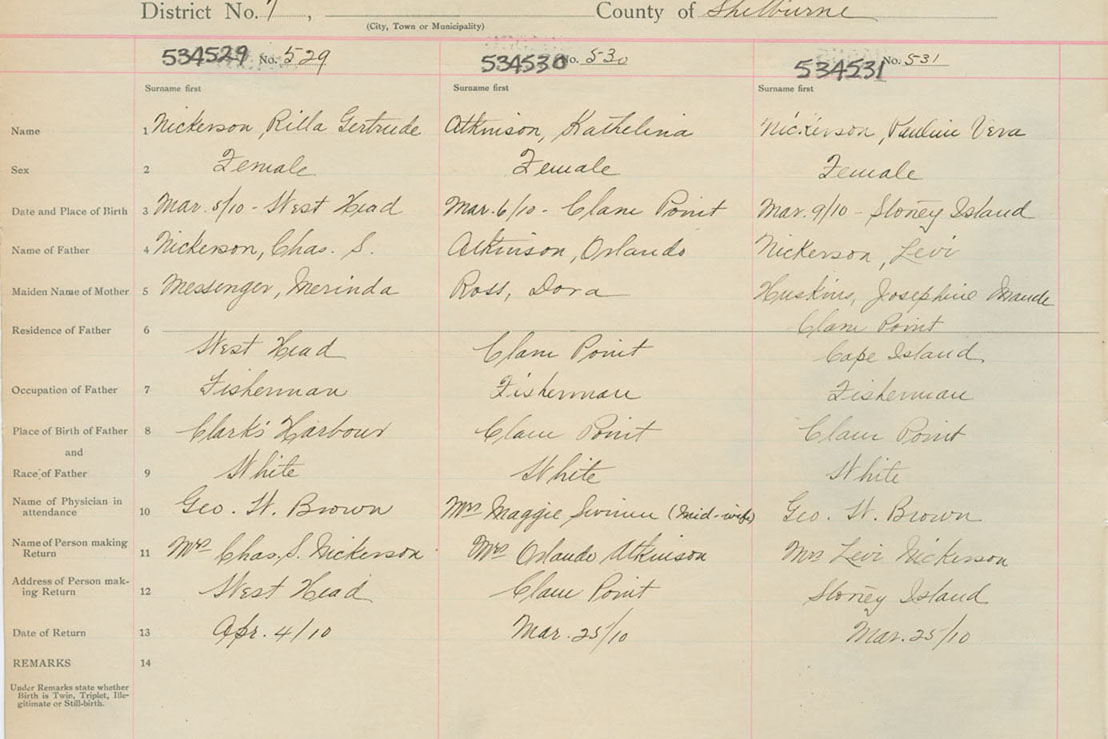 District No. 7, County of Shelburne
(City, Town or Municipality)
534529 No. 529 534530 No. 530 534531 No. 531
Surname first Surname first Surname first
Name 1 Nickerson, Rilla Gertrude Atkinson, Kathelina Nickerson, Pauline Vera
Sex 2 Female Female Female
Date and Place of Birth 3 Mar. 5/10 - West Head Mar. 6/10 - Clam Point Mar. 9/10 - Stoney Island
Name of Father 4 Nickerson, Chas. S. Atkinson, Orlando Nickerson, Levi
Maiden Name of Mother 5 Messenger, Merinda Ross, Dora Huskins, Josephine Maude
Residence of Father 6 Clam Point
West Head Clam Point Cape Island
Occupation of Father 7 Fisherman Fisherman Fisherman
Place of Birth of Father 8 Clark's Harbour Clam Point Clam Point
and
Race of Father 9 White White White
Name of Physician in
attendance 10 Geo. W. Brown Mrs Maggie (Mid-wife) Geo. W. Brown
Name of Person making
Return 11 Mrs Chas. S. Nickerson Mrs Orlando Atkinson Mrs Levi Nickerson
Address of Person mak-
ing Return 12 West Head Clam Point Stoney Island
Date of Return 13 Apr. 4/10 Mar. 25/10 Mar. 25/10
REMARKS 14
Under Remarks state whether
Birth is Twin, Triplet, Ille-
gitimate or Still-birth.